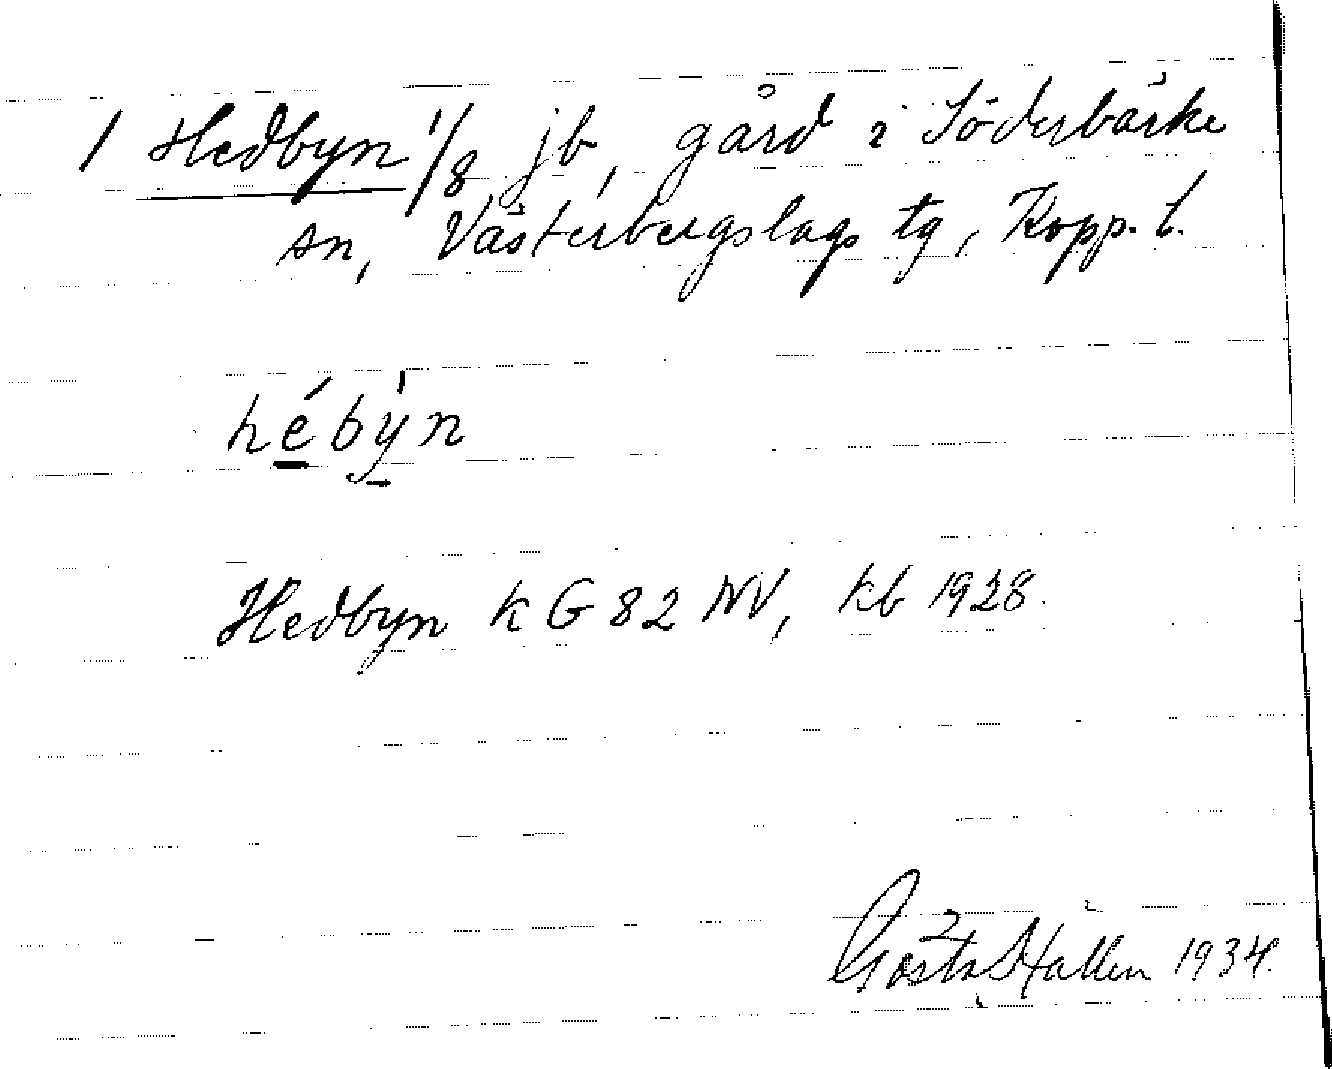 1 Hedbyn 1/8 jb, gård i Söderbärke
sn, Västerbergslags tg, Kopp. l.
hébýn
Hedbyn k G 82 NV, kb 1928.
Gösta Hallén 1934.